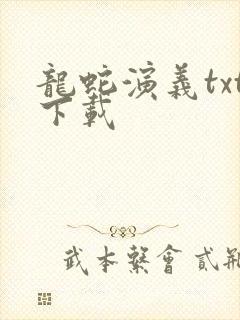 龍蛇演義txt
下載
武本繫會貳荊